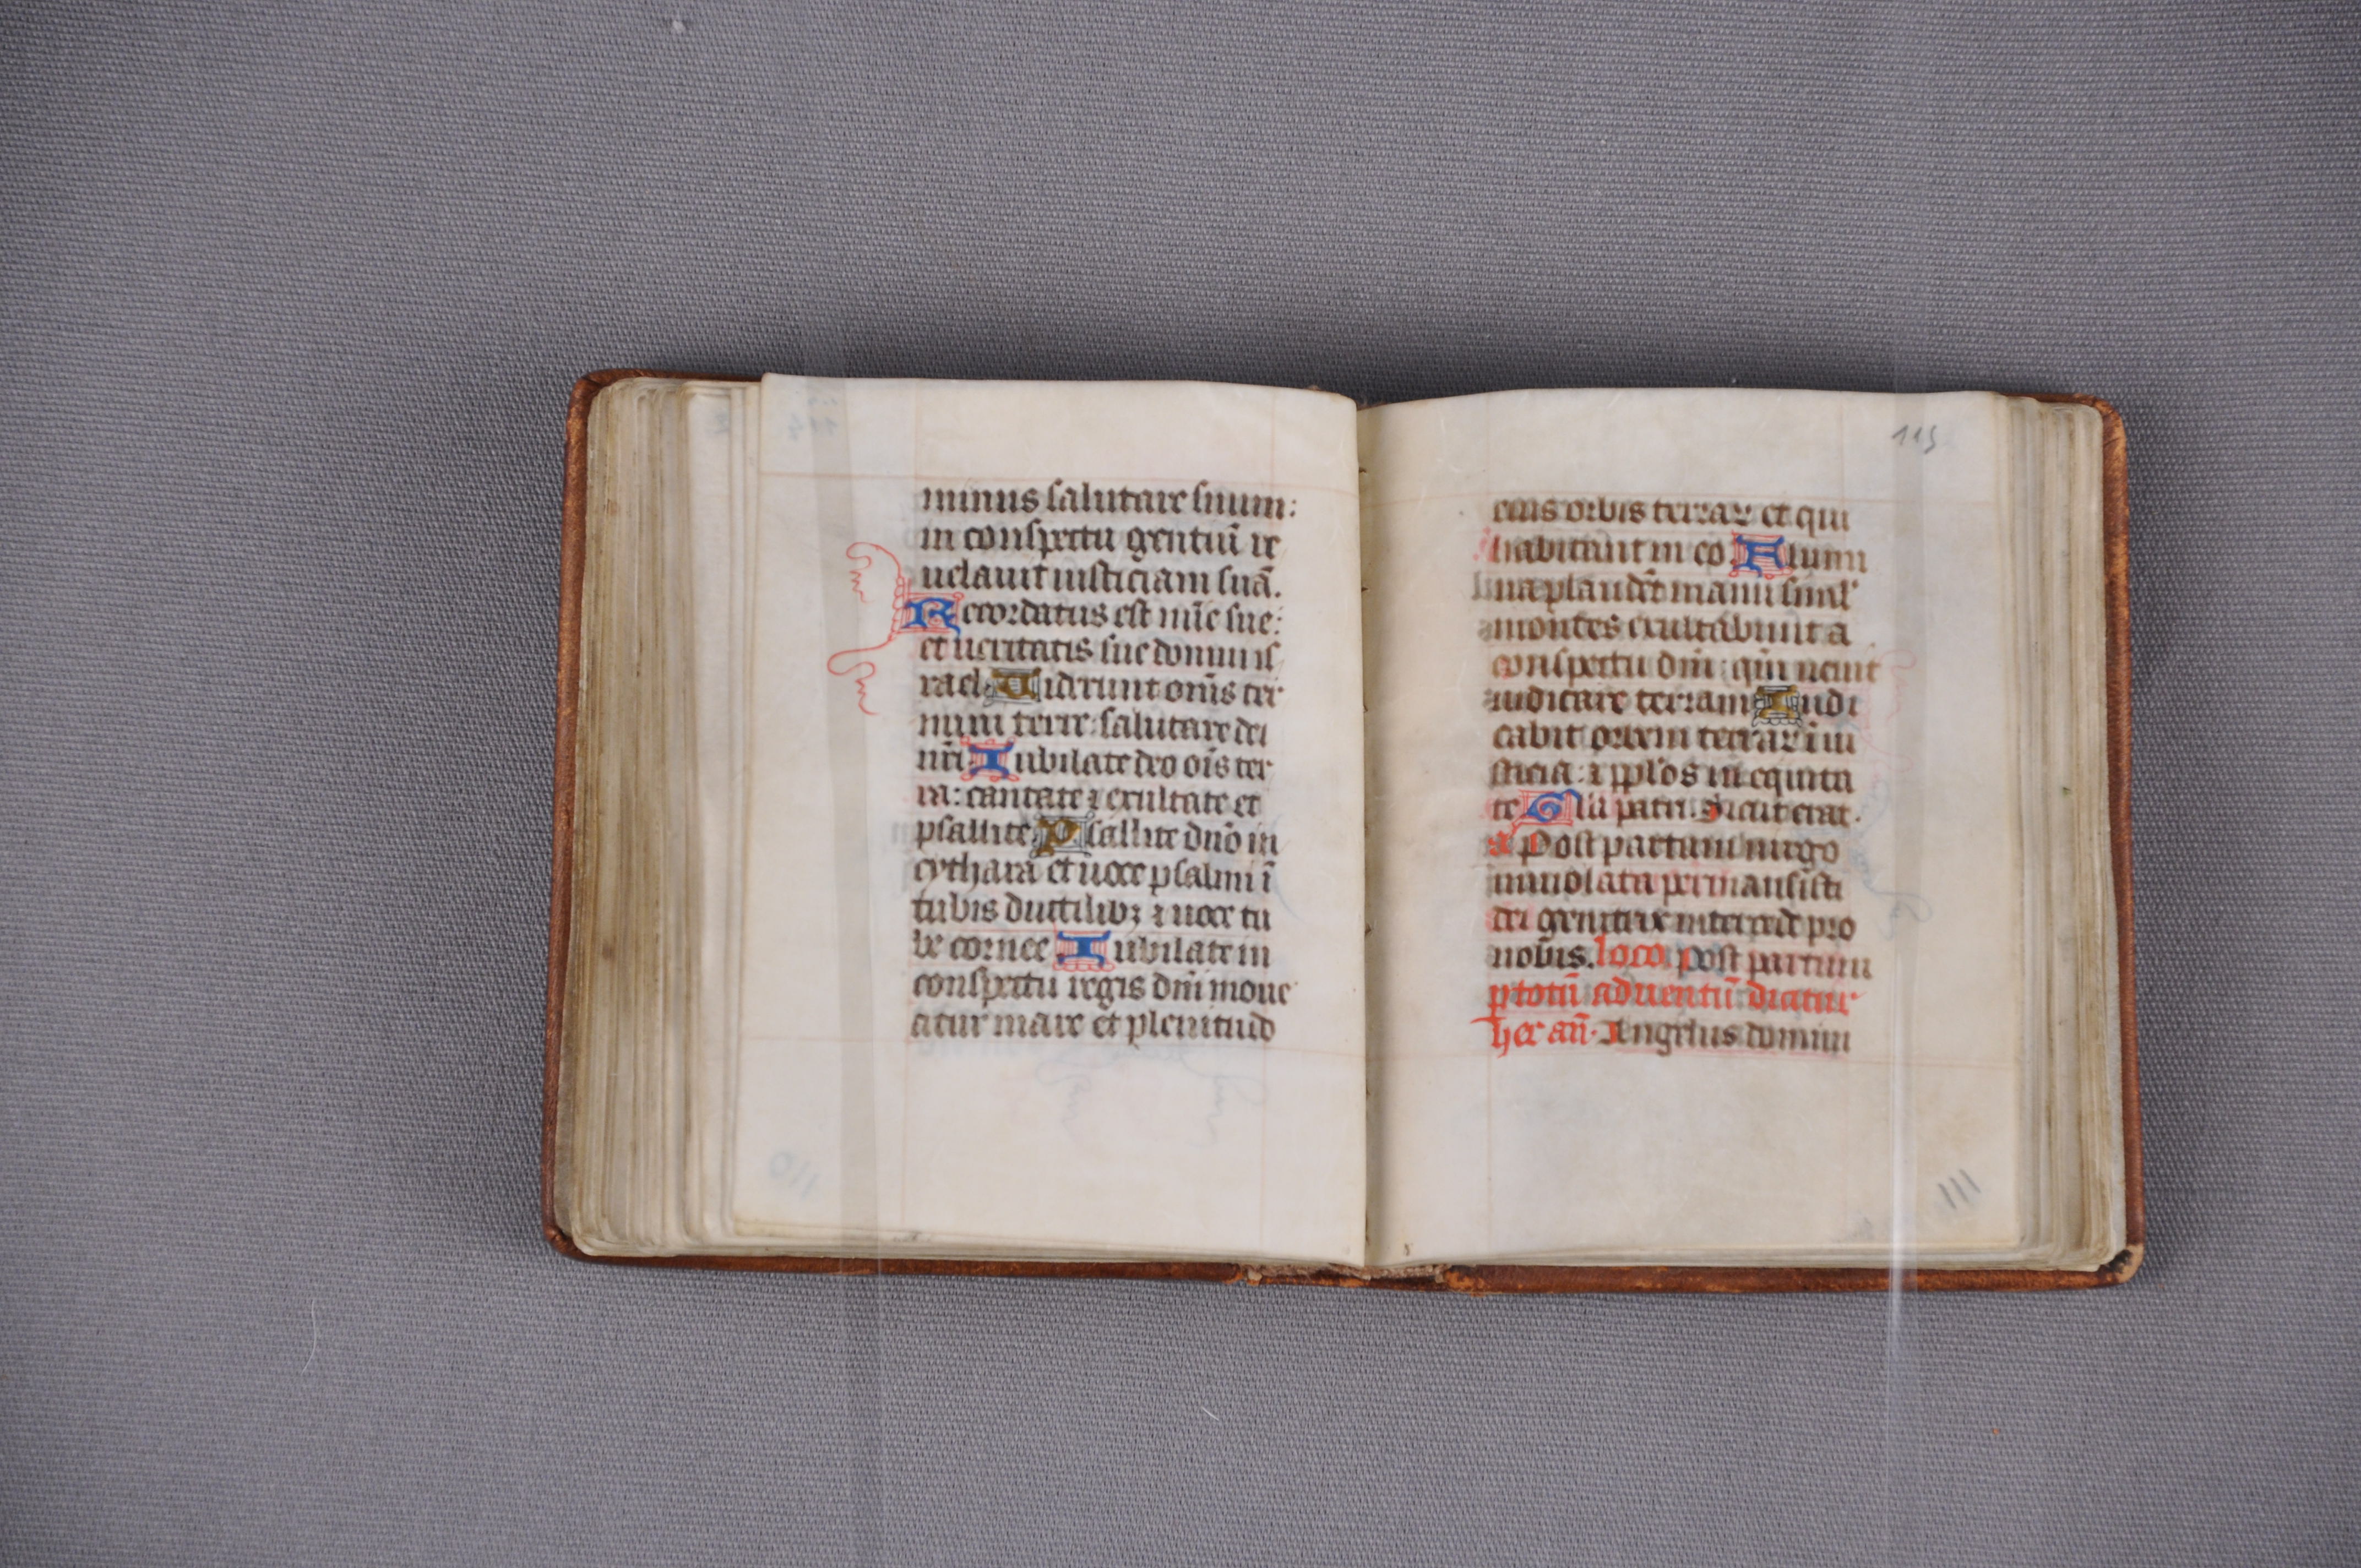 minus salutare suum:
in conspectu gentiū re
uelauit iusticiam suā.
Recordatus est mīe sue:
et ueritatis sue domui is
rael Uiderunt om̄s ter
mini terre: salutare dei
nr̄i Iubilate deo oīs ter
ra: cantate ⁊ exultate et
psallite Psallite dn̄o in
cythara et uoce psalmi ī
tubis ductilibꝫ ⁊ uoce tu
be cornee Iubilate in
conspectu regis dn̄i moue
atur mare et plenitud
115
eius orbis terraꝝ et qui
habitant in eo Flumi
na plaudēt manu simĺ
montes exultabunt a
conspectu dn̄i: qm̄ uenit
iudicare terram Iudi
cabit orbem terraꝝ ī iu
sticia: ⁊ ppĺos in equita
te Glīa patri. Sicut erat.
a Post partum uirgo
inuiolata permansisti
dei genitrix intercede pro
nobis. loco. post partum
ꝑ totū aduentū dicatur
hec an̄. Angelus domini
110
111